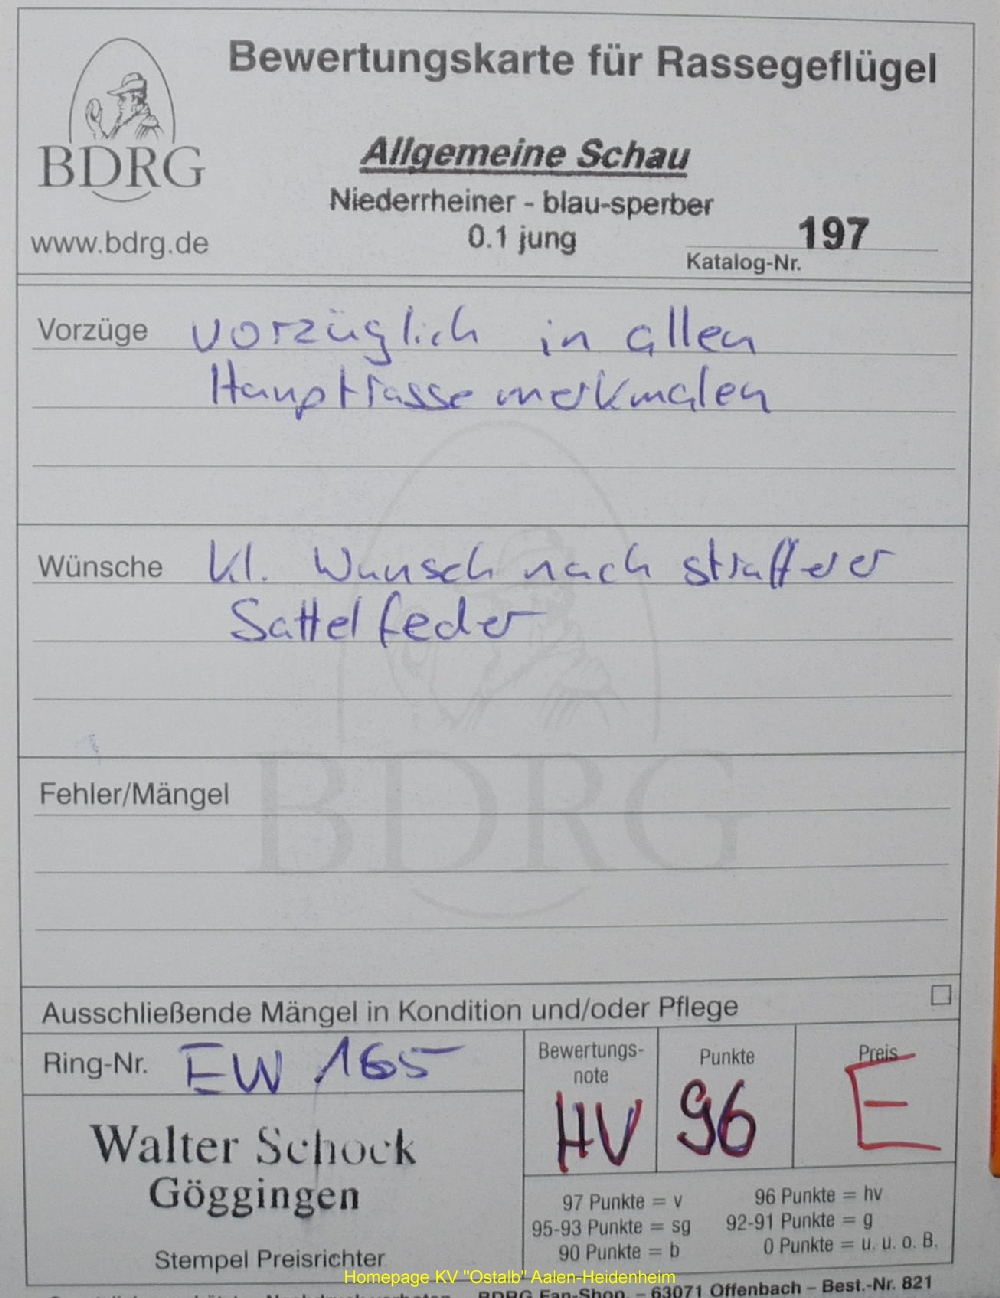 Bewertungskarte für Rassegeflügel
BDRG
www.bdrg.de
Allgemeine Schau
Niederrheiner - blau-sperber
0.1 jung
197
Katalog-Nr.
Vorzüge vorzüglich in allen
Hauptrassemerkmalen
Wünsche kl. Wunsch nach straffere r
Sattelfeder
BDRG
Fehler/Mängel
Ausschließende Mängel in Kondition und/oder Pflege
Ring-Nr. EW 165
Bewertungs-
note
HV
Punkte
96
Preis
E
Walter Schock
Göggingen
Stempel Preisrichter
97 Punkte = v
96 Punkte = hv
95-93 Punkte = sg
92-91 Punkte = g
90 Punkte = b
0 Punkte = u. u. o. B.
Homepage KV "Ostalb" Aalen-Heidenheim
BDRG Fan-Shop – 63071 Offenbach – Best.-Nr. 821